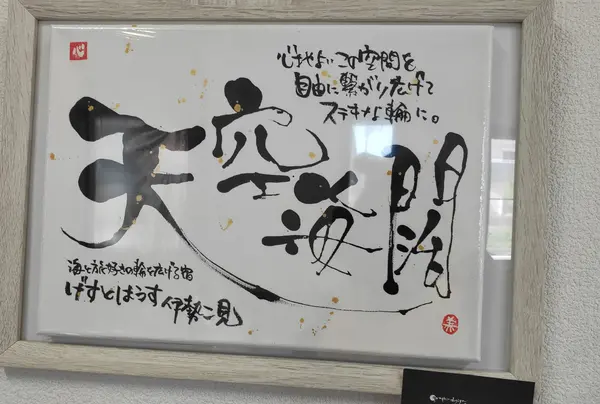 心
心地よいこの空間を
自由に繋がり広げて
ステキな輪に。
天空海闊
海と旅好きの輪を広げる宿
げすとはうす伊勢二見